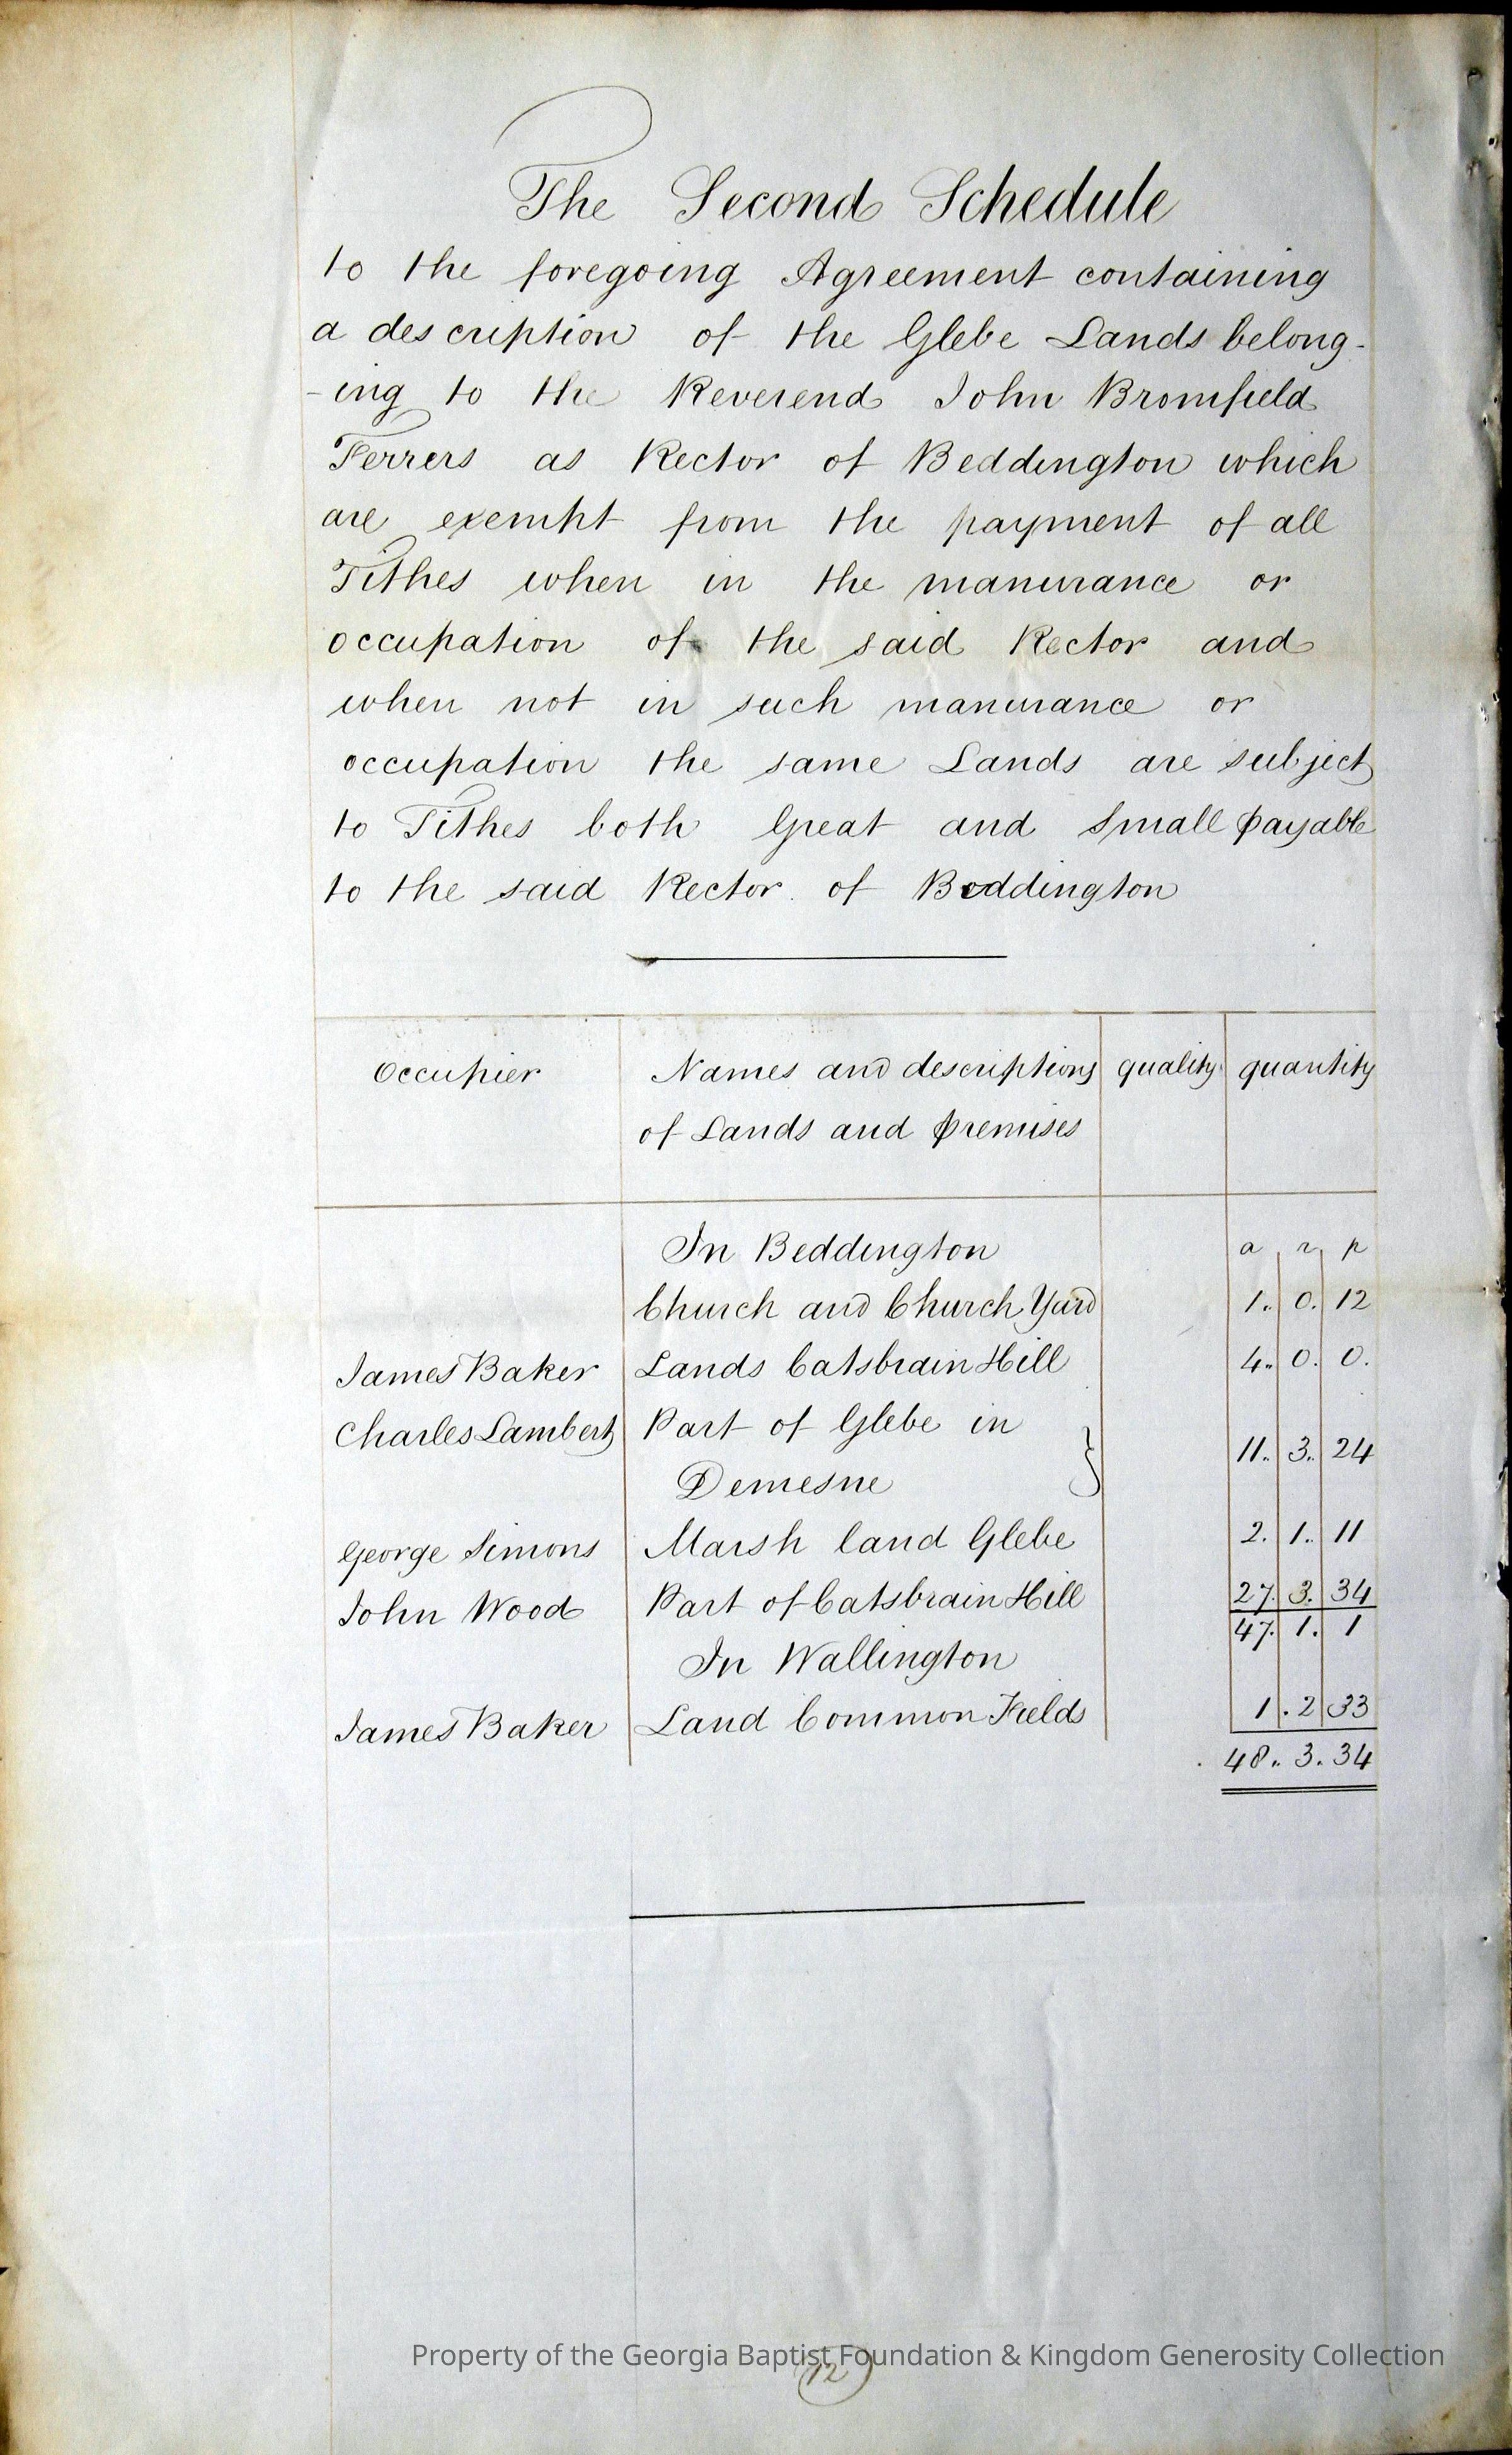 The Second Schedule
to the foregoing Agreement containing
a description of the Glebe Lands belong-
-ing to the Reverend John Bromfield
Ferrers as Rector of Beddington which
are exempt from the payment of all
Tithes when in the manurance or
occupation of the said Rector and
when not in such manurance or
occupation the same Lands are subject
to Tithes both Great and Small payable
to the said Rector of Beddington
Occupier Names and descriptions quality quantity
of Lands and premises
In Beddington a r p
Church and Church Yard 1.. 0. 12
James Baker Lands Catsbrain Hill 4.. 0. 0.
Charles Lambert Part of Glebe in
Demesne } 11.. 3.. 24
George Simons Marsh land Glebe 2. 1.. 11
John Wood Part of Catsbrain Hill 27. 3. 34
47. 1. 1
In Wallington
James Baker Land Common Fields 1 . 2 33
48.. 3. 34
Property of the Georgia Baptist Foundation & Kingdom Generosity Collection
12